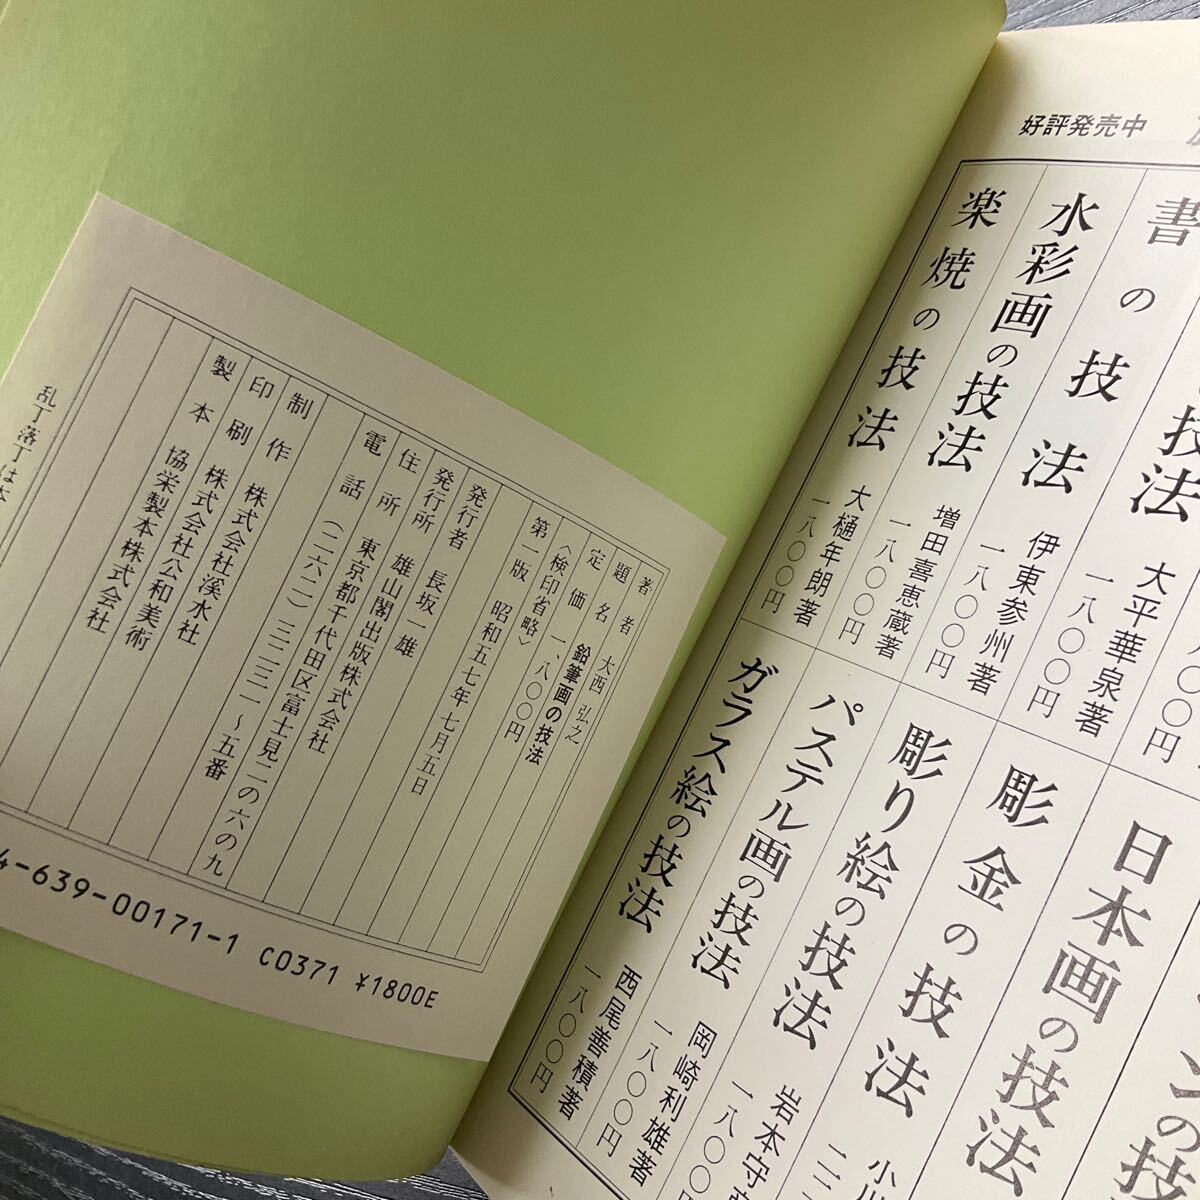 著者 大西弘之
題名 鉛筆画の技法
定価 一、八〇〇円
〈検印省略〉
第一版 昭和五七年七月五日
発行者 長坂一雄
発行所 雄山閣出版株式会社
住所 東京都千代田区富士見二の六の九
電話 (二六二)三二三一〜五番
制作 株式会社溪水社
印刷 株式会社公和美術
製本 協栄製本株式会社
乱丁落丁は本
4-639-00171-1 C0371 ¥1800E
好評発売中
書の技法 大平華泉著 一八〇〇円
水彩画の技法 伊東参州著 一八〇〇円
増田喜恵蔵著 一八〇〇円
楽焼の技法 大樋年朗著 一八〇〇円
日本画の技法
彫金の技法 小川
彫り絵の技法 岩本守
パステル画の技法 岡崎利雄著 一八〇〇円
ガラス絵の技法 西尾善積著 一八〇〇円